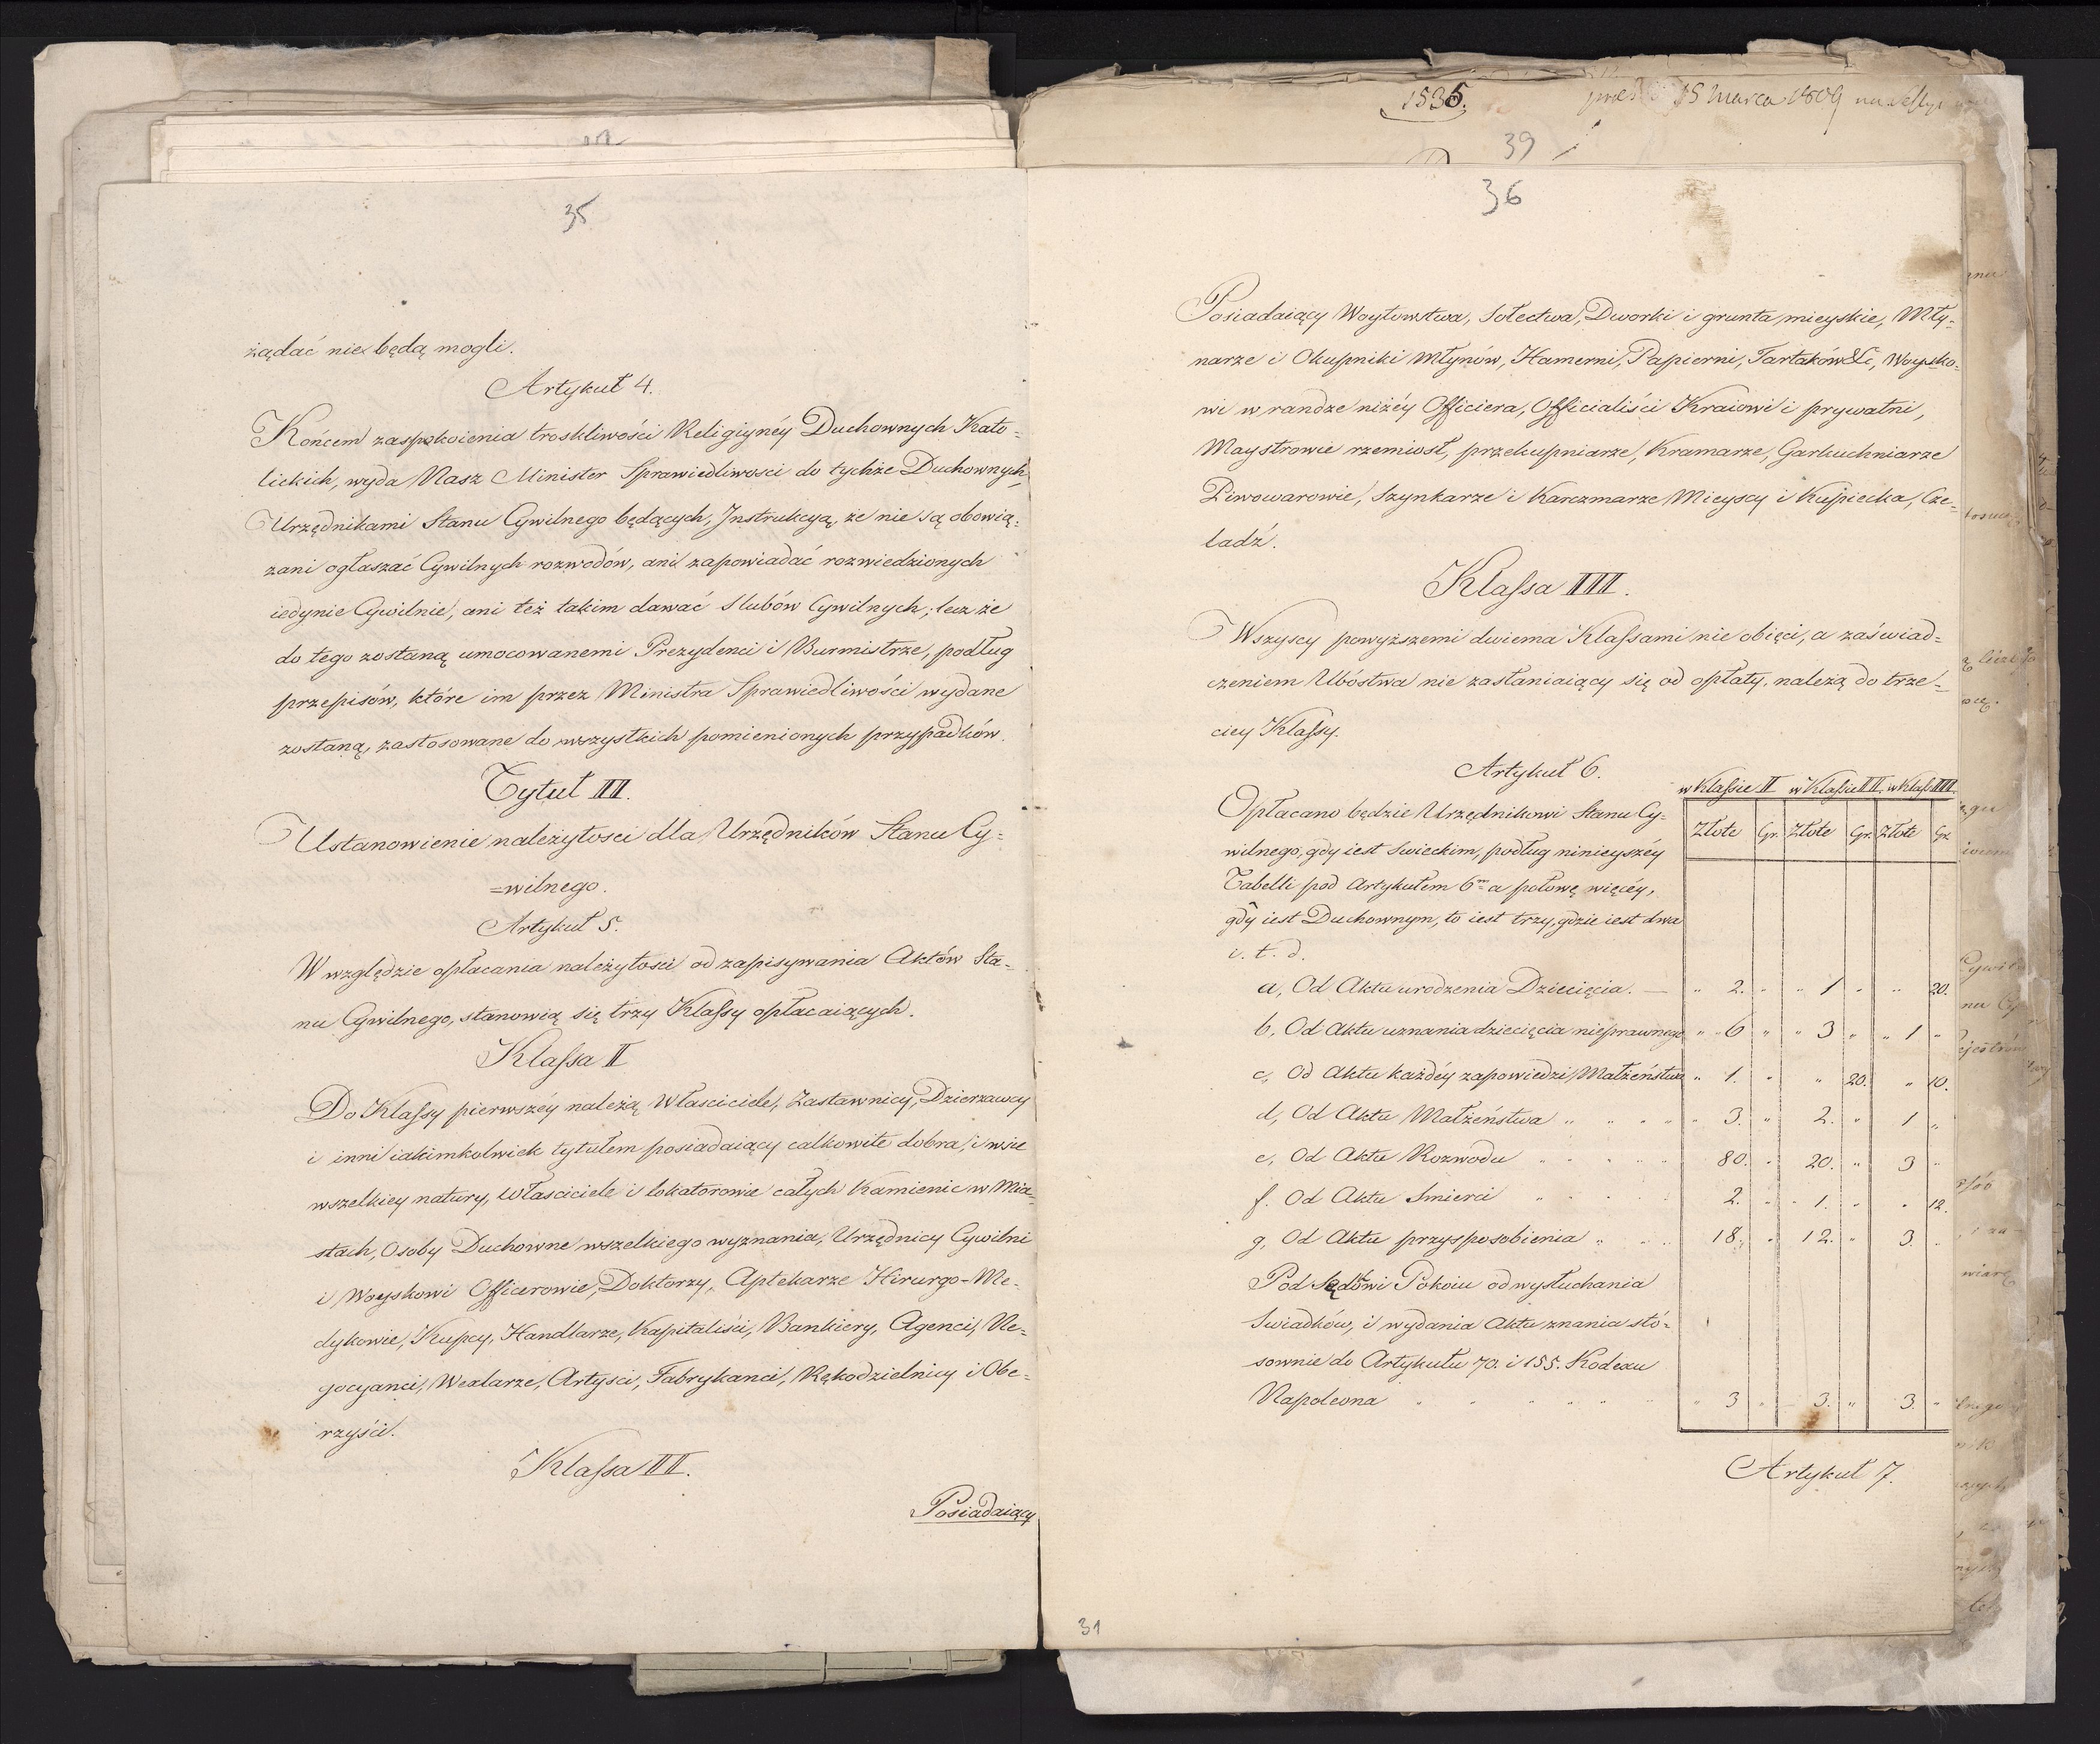 35
żądać nie będą mogli.
Artykuł 4.
Końcem zaspokoienia troskliwości Religiynéy Duchownych Kato=
lickich, wyda Nasz Minister Sprawiedliwosci do tychże Duchownych,
Urzędnikami Stanu Cywilnego będących, Jnstrukcyą, że nie są obowią=
zani ogłaszać Cywilnych rozwodów, ani zapowiadać rozwiedzionych
iedynie Cywilnie, ani też takim dawać Slubów Cywilnych; lecz że
do tego zostaną umocowanemi Prezydenci i Burmistrze, podług
przepisów, które im przez Ministra Sprawiedliwości wydane
zostaną, zastosowane do wszystkich pomienionych przypadków.
Tytuł III.
Ustanowienie należytosci dla Urzędników Stanu Cy=
=wilnego.
Artykuł 5.
W względzie opłacania należytosci od zapisywania Aktów Sta=
nu Cywilnego, stanowią się trzy Klassy opłacaiących.
Klassa I
Do Klassy pierwszéy należą Własciciele, Zastawnicy, Dzierzawcy
i inni iakimkolwiek tytułem posiadaiący całkowite dobra, i wsie
wszelkiey natury, Własciciele i lokatorowie całych Kamienic w Mia=
stach, Osoby Duchowne wszelkiego wyznania, Urzędnicy Cywilni
i Woyskowi Officerowie, Doktorzy, Aptekarze Hirurgo-Me=
dykowie, Kupcy, Handlarze, Kapitaliści, Bankiery, Agenci, Ne=
gocyanci, Wexlarze, Artysci, Fabrykanci, Rękodzielnicy i Obe=
rzyści.
Klassa II.
Posiadaiący
1535.
15 Marca 1809
39
36
Posiadaiący Woytowstwa, Sołectwa, Dworki i grunta mieyskie, Mły=
narze i Okupniki Młynów, Hamerni, Papierni, Tartaków &c, Woysko=
wi w randze niżéy Officiera, Officialiści Kraiowi i prywatni,
Maystrowie rzemiost, przekupniarze, Kramarze, Garkuchniarze
Piwowarowie, Szynkarze i Karczmarze Mieyscy i Kupiecka, Cze=
ladź.
Klassa III.
Wszyscy powyższemi dwiema Klassami nie obięci, a zaświad=
czeniem Ubóstwa nie zasłaniaiący się od opłaty, należą do trze=
ciey Klassy.
Artykuł 6.
w Klassie I w Klassie II. w Klass III.
Opłacano będzie Urzędnikowi Stanu Cy=
Złote Gr. Złote Gr. Złote Gr.
wilnego, gdy iest Swieckim, podług ninieyszéy
Tabelli pod Artykułem 6m a połowę więcéy,
gdy iest Duchownym, to iest trzy, gdzie iest dwa
i. t. d.
a, Od Aktu urodzenia Dziecięcia. — " 2. " " 1 " " 20.
b, Od Aktu uznania dziecięcia nieprawnego " 6 " " 3 " " 1 "
c, Od Aktu każdéy zapowiedzi Małżeństwa " 1. " " 20. " 10.
d, Od Aktu Małżeństwa " " " " " 3. " 2. " 1 "
e, Od Aktu Rozwodu " " " " 80. " 20. " 3 "
f. Od Aktu Smierci " " " " 2. " " 1. " " 12.
g, Od Aktu przysposobienia " " " 18. " 12. " 3. "
Pod Sędkowi Pokoiu od wysłuchania
Swiadków, i wydania Aktu znania stó=
sownie do Artykułu 70. i 155. Kodexu
Napoleona " " " " " " " 3 " 3. " 3. "
Artykuł 7.
31